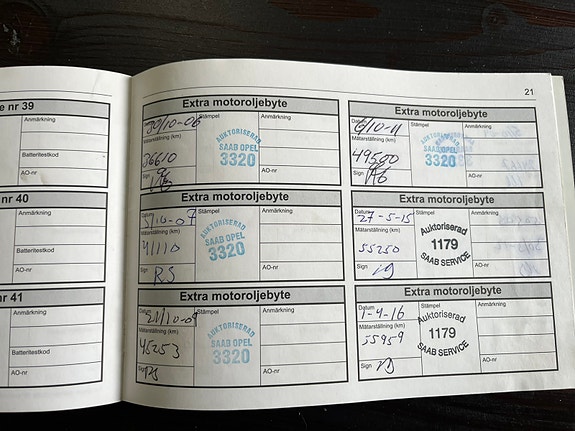 21
e nr 39
Anmärkning
Batteritestkod
AO-nr
nr 40
Anmärkning
Batteritestkod
AO-nr
nr 41
Anmärkning
Batteritestkod
AO-nr
Extra motoroljebyte
Datum
30/10-06
Stämpel
Anmärkning
Mätarställning (km)
36610
AUKTORISERAD
SAAB OPEL
3320
Sign
AO-nr
Extra motoroljebyte
Datum
/10-07
Stämpel
Anmärkning
Mätarställning (km)
41110
AUKTORISERAD
SAAB OPEL
3320
Sign
RS
AO-nr
Extra motoroljebyte
Datum
21/10-09
Stämpel
Anmärkning
Mätarställning (km)
45253
AUKTORISERAD
SAAB OPEL
3320
Sign
AO-nr
Extra motoroljebyte
Datum
6/10-11
Stämpel
Anmärkning
Mätarställning (km)
49500
AUKTORISERAD
SAAB OPEL
3320
Sign
AO-nr
Extra motoroljebyte
Datum
27-5-15
Stämpel
Anmärkning
Mätarställning (km)
55250
Auktoriserad
1179
SAAB SERVICE
Sign
AO-nr
Extra motoroljebyte
Datum
1-4-16
Stämpel
Anmärkning
Mätarställning (km)
55959
Auktoriserad
1179
SAAB SERVICE
Sign
AO-nr